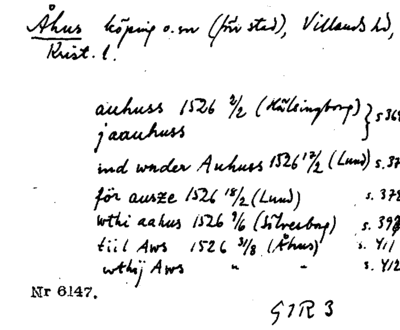 Åhus köping o. sn (förr stad), Villands hd,
Krist. l.
auhuss 1526 2/2 (Hälsingborg) } s 369
jaauhuss
ind wnder Auhuss 1526 17/2 (Lund) s. 37
för ausze 1526 18/2 (Lund) s. 378
wthi aahus 1526 9/6 (Sölvesborg) s. 398
tiil Aws 1526 31/8 (Åhus) s. 411
wthij Aws " " s. 412
Nr 6147.
G I R 3